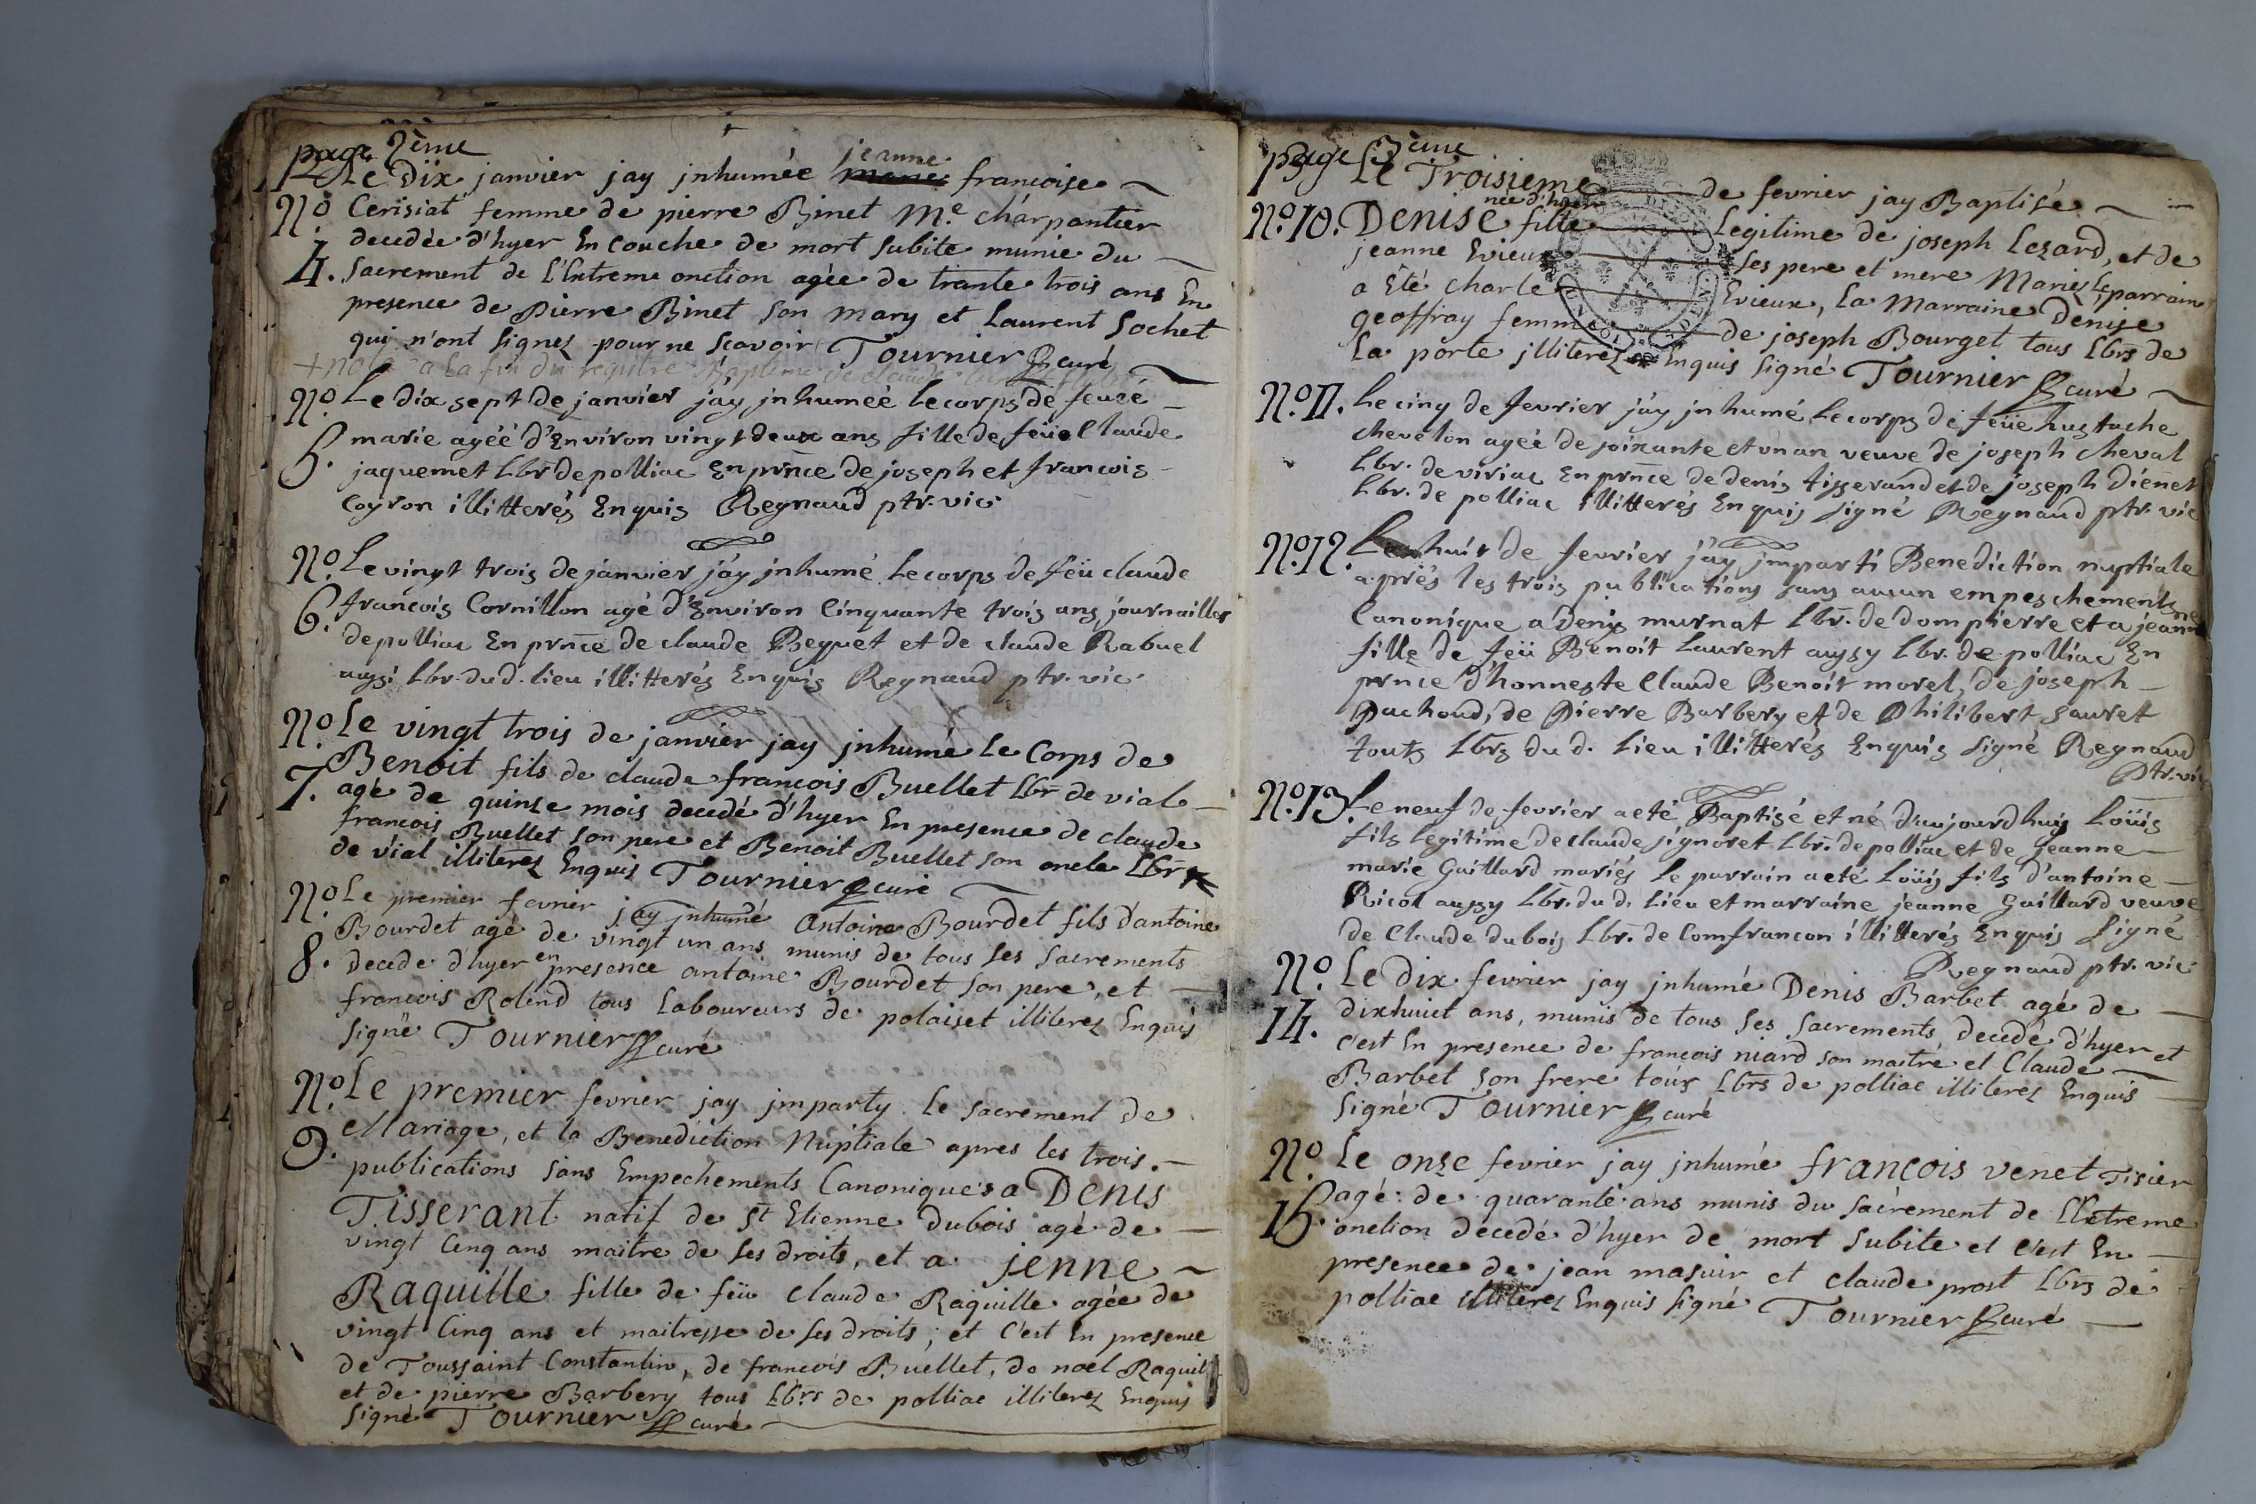 page 2ème
Le Dix janvier jay jnhumée jeanne francoise
No Cerisiat femme de pierre Binet Me. charpantier
4. decedée d'hyer En couche de mort subite munie du
sacrement de l'Extreme onction agée de trante trois ans En
presence de Pierre Binet son mary et Laurent Sochet
qui n'ont signez pour ne scavoir Tournier curé
+ nota a la fin du registre Baptême de claude
No Le dix sept de janvier j'ay jnhumée le corps de
5. marie agéé d'Environ vingt deux ans fille de feüe Claude
jaquemet Lbr de polliac En prñce de joseph et francois
Coyron illitterés Enquis Regnaud ptr. vic.
No. Le vingt trois de janvier j'ay jnhumé le corps de feü claude
6. francois Cornillon agé d'Environ Cinquante trois ans, journailler
de polliac En prnce de claude Beguet et de claude Rabuel
aussi Lbr. du d. lieu illitterés Enquis Regnaud ptr. vic.
No. Le vingt trois de janvier jay jnhumé le Corps de
7. Benoit fils de claude francois Buellet Lbr de vial
agé de quinse mois decedé d'hyer En presence de claude
francois Buellet son pere et Benoit Buellet son oncle Lbrs
de vial illiterez Enquis Tournier curé
No. Le premier fevrier jay jnhumé Antoine Bourdet fils d'antoine
8. Bourdet agé de vingt un ans munis de tous ses sacrements
decede d'hyer en presence antoine Bourdet son pere, et
francois Rolend tous Laboureurs de polaiset illiterez Enquis
signé Tournier curé
No. Le premier fevrier jay jmparty le sacrement de
9. Mariage, et la Benediction Nuptiale apres les trois
publications sans Empechements Canoniques a Denis
Tisserant natif de St Etienne dubois agé de
vingt Cinq ans maitre de ses droits, et a jenne
Raquille fille de feü claude Raquille agée de
vingt Cinq ans et maitresse de ses droits, et c'est En presence
de Toussaint Constantin, de francois Buellet, de noel Raquil
et de pierre Barbery tous Lbrs de polliac illiterez Enquis
signé Tournier curé
page 3ème
Le Troisieme de fevrier jay Baptisé
née d'hyer
No. 10. Denise fille Legitime de joseph Lezard, et de
jeanne Evieux ses pere et mere Mariez Le parrain
a Eté charle Evieux, la Marraine Denise
geoffray femme de joseph Bourget tous Lbrs de
la porte jlliterez Enquis signé Tournier curé
No. 11. Le cinq de fevrier j'ay jnhumé le corps de feüe hustache
chevelon agée de soixante et un an veuve de joseph cheval
Lbr. de viriac En prnce de denis tisserand et de joseph Dienet
Lbr. de polliac illitterés Enquis signé Regnaud ptr. vic
No. 12. Le huit de fevrier j'ay jmparti Benediction nuptiale
aprés les trois publications sans aucun empeschement
Canonique a denis murnat Lbr. de dompierre et a jeanne
fille de feü Benoit Laurent aussy Lbr. de polliac En
prnce d'honneste Claude Benoit morel, de joseph
Pachoud, de Pierre Barbery et de Philibert sauret
touts Lbrs du d. lieu illitterés Enquis signé Regnaud
Ptr. vic
No. 13. Le neuf de fevrier a eté Baptisé et né d'aujourdhuy Loüis
fils legitime de claude signoret Lbr. de polliac et de jeanne
marie Guillard mariés le parrain a eté Loüis fils d'antoine
Ricol aussy Lbr. du d. lieu et marraine jeanne Guillard veuve
de Claude dubois Lbr. de Comfrancon illitterés Enquis signé
Regnaud ptr. vic
No. Le Dix fevrier jay jnhumé Denis Barbet agé de
14. dixhuict ans, munis de tous ses sacrements, decedé d'hyer et
c'est En presence de francois niard son maitre et Claude
Barbet son frere tous Lbrs de polliac illiterez Enquis
signé Tournier curé
No. Le onse fevrier jay jnhumé francois venet Tisier
15. agé de quarante ans munis du sacrement de l'Extreme
onction decedé d'hyer de mort subite et c'est En
presence de jean masuir et claude prost Lbrs de
polliac illiterez Enquis signé Tournier curé